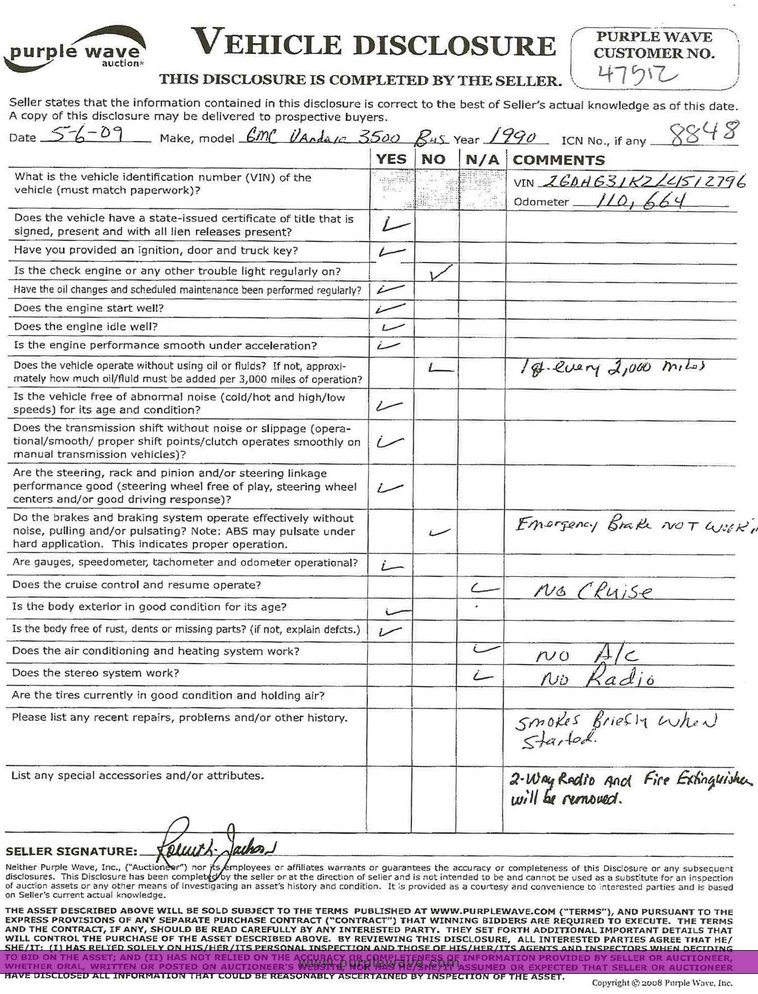 purple wave
auction
VEHICLE DISCLOSURE
THIS DISCLOSURE IS COMPLETED BY THE SELLER.
PURPLE WAVE
CUSTOMER NO.
47512
Seller states that the information contained in this disclosure is correct to the best of Seller's actual knowledge as of this date.
A copy of this disclosure may be delivered to prospective buyers.
Date 5-6-09 Make, model GMC Vandura 3500 Bus Year 1990 ICN No., if any 8848
YES NO N/A COMMENTS
What is the vehicle identification number (VIN) of the
vehicle (must match paperwork)?
VIN 2GDHG31K2L4512796
Odometer 110,664
Does the vehicle have a state-issued certificate of title that is
signed, present and with all lien releases present?
Have you provided an ignition, door and truck key?
Is the check engine or any other trouble light regularly on?
Have the oil changes and scheduled maintenance been performed regularly?
Does the engine start well?
Does the engine idle well?
Is the engine performance smooth under acceleration?
Does the vehicle operate without using oil or fluids? If not, approxi-
mately how much oil/fluid must be added per 3,000 miles of operation?
1qt. every 2,000 miles
Is the vehicle free of abnormal noise (cold/hot and high/low
speeds) for its age and condition?
Does the transmission shift without noise or slippage (opera-
tional/smooth/ proper shift points/clutch operates smoothly on
manual transmission vehicles)?
Are the steering, rack and pinion and/or steering linkage
performance good (steering wheel free of play, steering wheel
centers and/or good driving response)?
Do the brakes and braking system operate effectively without
noise, pulling and/or pulsating? Note: ABS may pulsate under
hard application. This indicates proper operation.
Emergency Brake NOT
Are gauges, speedometer, tachometer and odometer operational?
Does the cruise control and resume operate?
No Cruise
Is the body exterior in good condition for its age?
Is the body free of rust, dents or missing parts? (if not, explain defcts.)
Does the air conditioning and heating system work?
No A/c
Does the stereo system work?
No Radio
Are the tires currently in good condition and holding air?
Please list any recent repairs, problems and/or other history.
Smokes Briefly when
Started.
List any special accessories and/or attributes.
2-Way Radio And Fire Extinguisher
will be removed.
SELLER SIGNATURE:
Neither Purple Wave, Inc., ("Auctioneer") nor its employees or affiliates warrants or guarantees the accuracy or completeness of this Disclosure or any subsequent
disclosures. This Disclosure has been completed by the seller or at the direction of seller and is not intended to be and cannot be used as a substitute for an inspection
of auction assets or any other means of investigating an asset's history and condition. It is provided as a courtesy and convenience to interested parties and is based
on Seller's current actual knowledge.
THE ASSET DESCRIBED ABOVE WILL BE SOLD SUBJECT TO THE TERMS PUBLISHED AT WWW.PURPLEWAVE.COM ("TERMS"), AND PURSUANT TO THE
EXPRESS PROVISIONS OF ANY SEPARATE PURCHASE CONTRACT ("CONTRACT") THAT WINNING BIDDERS ARE REQUIRED TO EXECUTE. THE TERMS
AND THE CONTRACT, IF ANY, SHOULD BE READ CAREFULLY BY ANY INTERESTED PARTY. THEY SET FORTH ADDITIONAL IMPORTANT DETAILS THAT
WILL CONTROL THE PURCHASE OF THE ASSET DESCRIBED ABOVE. BY REVIEWING THIS DISCLOSURE, ALL INTERESTED PARTIES AGREE THAT HE/
SHE/IT: (I) HAS RELIED SOLELY ON HIS/HER/ITS PERSONAL INSPECTION AND THOSE OF HIS/HER/ITS AGENTS AND INSPECTORS WHEN DECIDING
TO BID ON THE ASSET; AND (II) HAS NOT RELIED ON THE ACCURACY OR COMPLETENESS OF INFORMATION PROVIDED BY SELLER OR AUCTIONEER
WHETHER ORAL, WRITTEN OR POSTED ON AUCTIONEER'S WEBSITE, NOR HAS HE/SHE/IT ASSUMED OR EXPECTED THAT SELLER OR AUCTIONEER
www.purplewave.com
HAVE DISCLOSED ALL INFORMATION THAT COULD BE REASONABLY ASCERTAINED BY INSPECTION OF THE ASSET.
Copyright © 2008 Purple Wave, Inc.